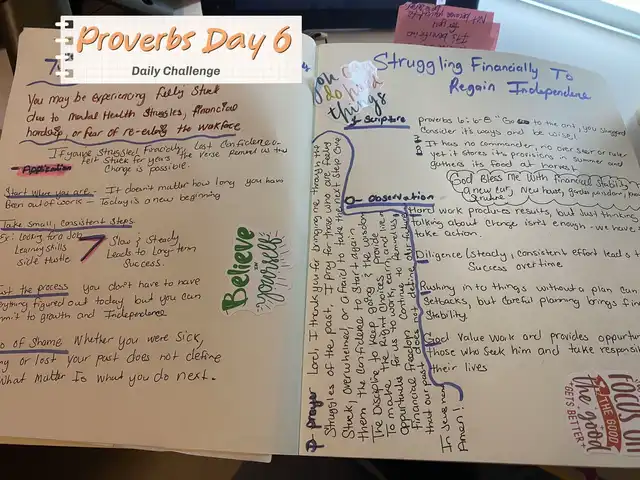 Proverbs Day 6
Daily Challenge
You may be experiencing feeling Stuck
due to mental Health Struggles, financial
hardship, or fear of re-entering the workforce
If you've Struggled Financially, Lost Confidence or
felt Stuck for years the verse remind us that
Change is possible.
Application
Start Where you are - It doesn't matter how long you have
Been out of work - Today is a new beginning
Take Small, consistent Steps
looking for a Job
Learning Skills
Side Hustle
Slow & Steady
Leads to Long-term
Success.
the process you don't have to have
everything figured out today but you can
commit to growth and Independence
of Shame Whether you were Sick,
or lost your past does not define
What matter Is what you do next.
Believe
in
yourself
you
do hard
things
Struggling Financially To
Regain Independence
Scripture
proverbs 6:6-8 "Go to the ant, you sluggard
Consider its ways and be wise!
It has no commander, no over seer or ruler
yet it Stores its provisions in Summer and
gathers its Food at harvest.
God Bless me with financial stability
a new car, New house,
O- Observation
Hard work produces results, but Just thinking
talking about change isn't enough - we have
take action.
Diligence (Steady, consistent effort leads to
Success over time
Rushing into things without a plan can
Setbacks, but Careful planning brings
Stability.
God Value Work and provides
those who Seek him and take
their lives
P- prayer Lord, I thank you for bringing me through the
Struggles of the past, I pray for those who are feeling
Stuck, overwhelmed, or afraid to take the next step. Give
them the confidence to start again
The Discipline to keep going & the wisdom
To make the Right choices. provide
opportunities for us to work, earn, and live in
Financial freedom. Continue to remind us
that our past does not define our future
In Jesus name
Amen!
FOCUS ON
THE GOOD
The good
GETS BETTER